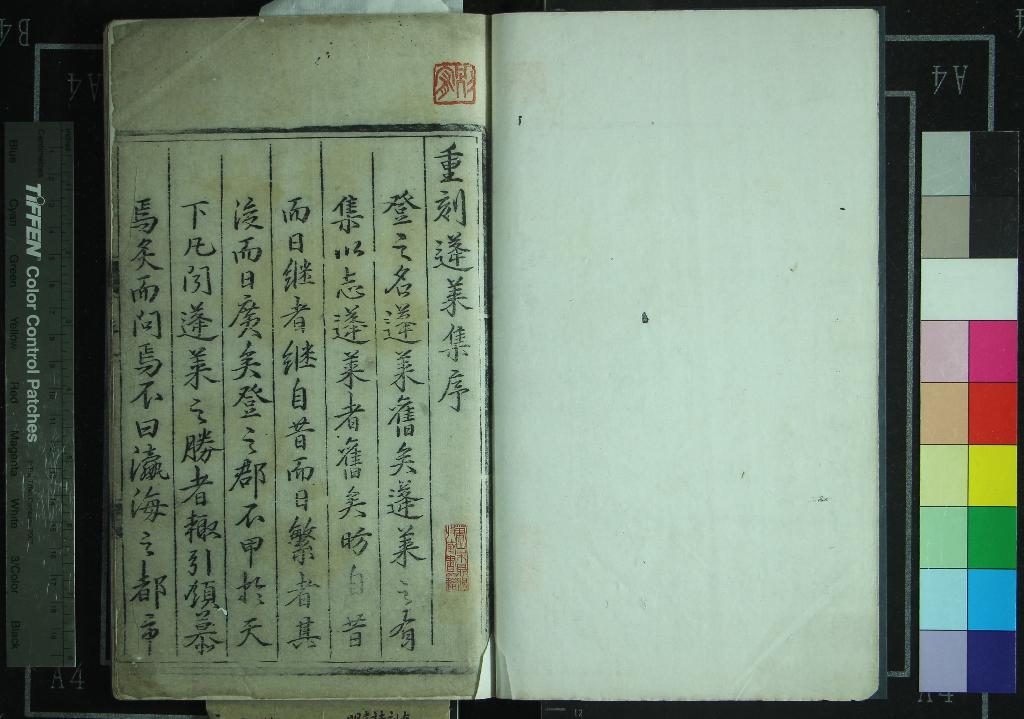 重刻蓬萊集序
登之名蓬萊舊矣蓬萊之有
集以志蓬萊者舊矣昉自昔
而日継者継自昔而日繁者其
後而日廣矣登之郡不甲於天
下凡閱蓬萊之勝者輙引領慕
焉矣而问焉不曰瀛海之都市
TIFFEN Color Control Patches
Blue
Cyan
Green
Yellow
Red
Magenta
White
3/Color
Black
B4
A4
A4
A4
A4